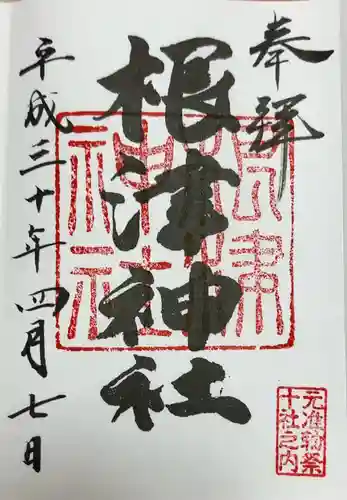 奉拝
根津神社
平成三十年四月七日
元准勅祭
十社之内